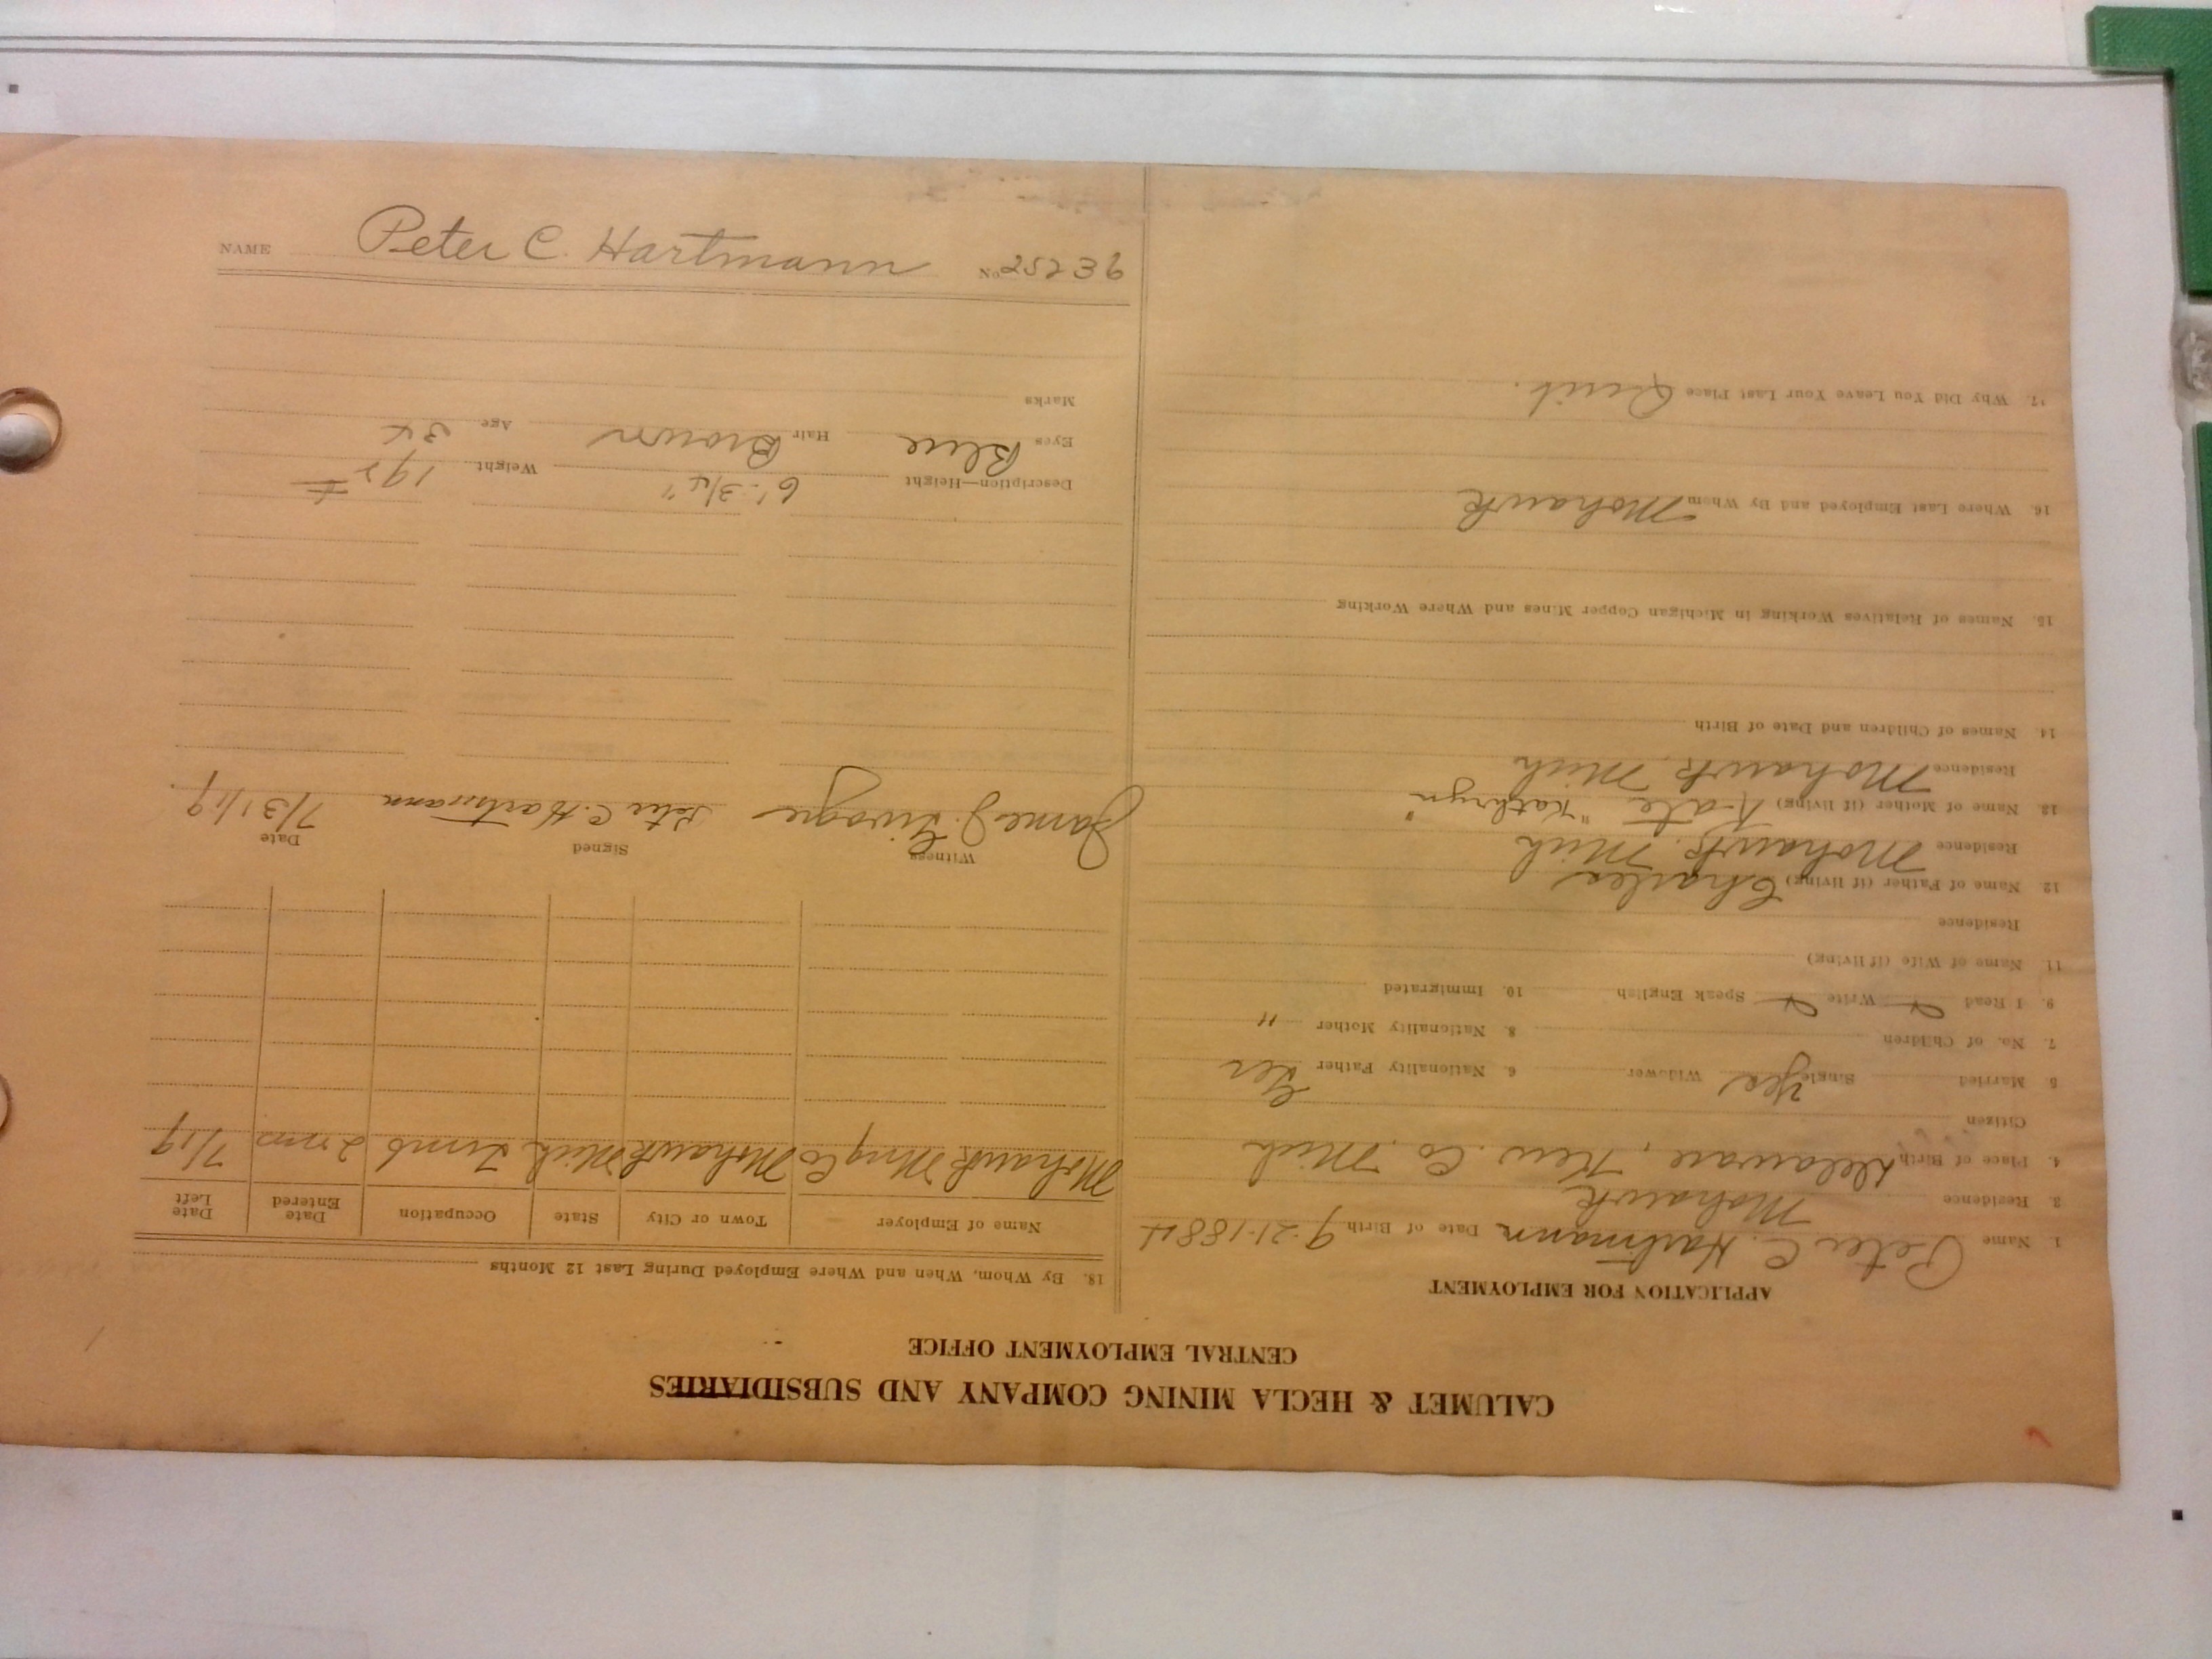 CALUMET & HECLA MINING COMPANY AND SUBSIDIARIES
CENTRAL EMPLOYMENT OFFICE
APPLICATION FOR EMPLOYMENT
1. Name Peter C. Hartmann Date of Birth 9-21-1884
3. Residence Mohawk
4. Place of Birth Delaware, Kew. Co. Mich
Citizen
5. Married Single Yes Widower 6. Nationality Father Ger
7. No. of Children 8. Nationality Mother "
9. I Read Write Speak English 10. Immigrated
11. Name of Wife (if living)
Residence
12. Name of Father (if living) Charles
Residence Mohawk, Mich
13. Name of Mother (if living) Kate "Kathryn"
Residence Mohawk, Mich
14. Names of Children and Date of Birth
15. Names of Relatives Working in Michigan Copper Mines and Where Working
16. Where Last Employed and By Whom Mohawk
17. Why Did You Leave Your Last Place Quit.
18. By Whom, When and Where Employed During Last 12 Months
Name of Employer Town or City State Occupation Date Entered Date Left
Mohawk Mng Co Mohawk Mich 2 mos 7/19
Witness Signed Date
James J. Peter C. Hartmann 7/31/19.
Description—Height 6'-3/4" Weight 192
Eyes Blue Hair Brown Age 34
Marks
NAME Peter C. Hartmann No. 25236